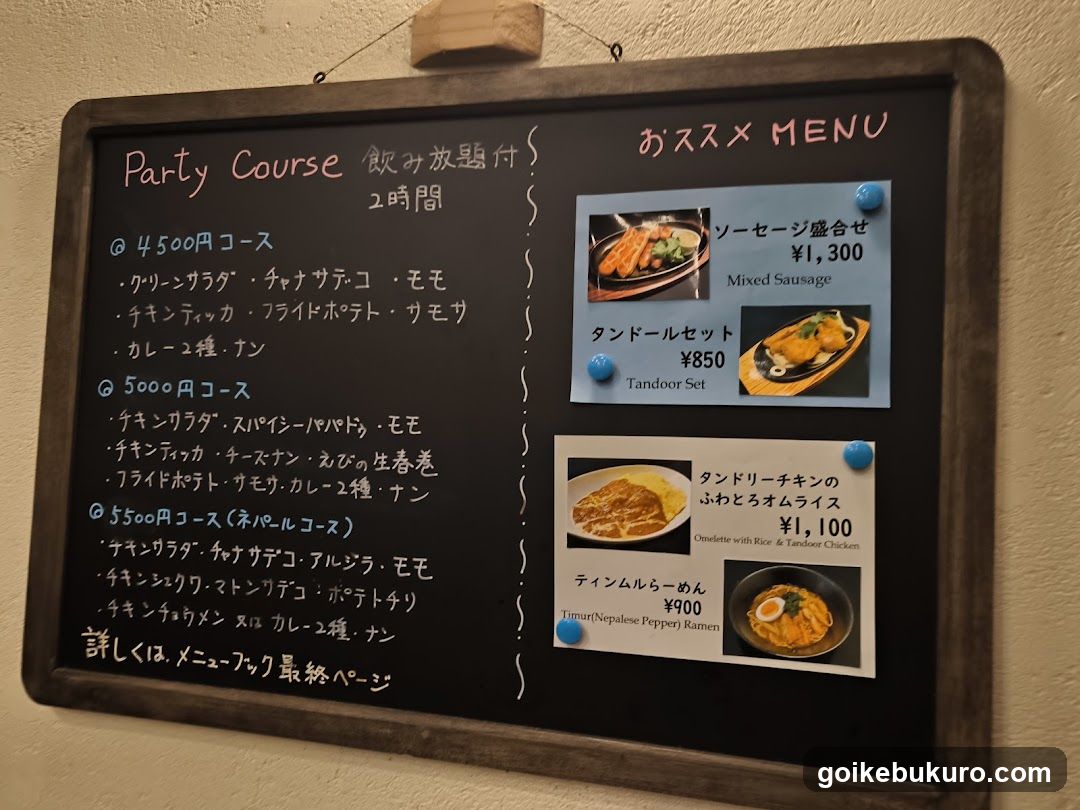 Party Course 飲み放題付
2時間
@ 4500円コース
・グリーンサラダ ・チャナサデコ ・モモ
・チキンティッカ ・フライドポテト ・サモサ
・カレー2種・ナン
@ 5000円コース
・チキンサラダ・スパイシーパパドゥ・モモ
・チキンティッカ・チーズナン・えびの生春巻
・フライドポテト・サモサ・カレー2種・ナン
@ 5500円コース(ネパールコース)
・チキンサラダ・チャナサデコ・アルジラ・モモ
・チキンシェクワ・マトンサデコ・ポテトチリ
・チキンチョウメン 又は カレー2種・ナン
詳しくは、メニューブック最終ページ
おススメ MENU
ソーセージ盛合せ
¥1,300
Mixed Sausage
タンドールセット
¥850
Tandoor Set
タンドリーチキンの
ふわとろオムライス
¥1,100
Omelette with Rice & Tandoor Chicken
ティンムルらーめん
¥900
Timur(Nepalese Pepper) Ramen
goikebukuro.com